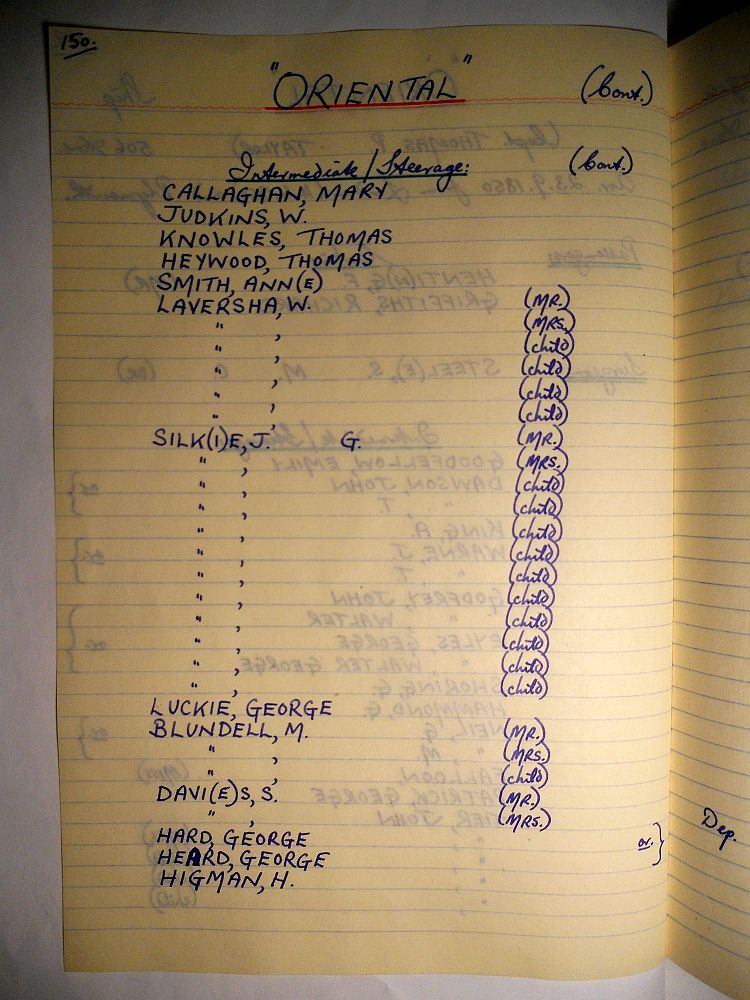 150.
"ORIENTAL" (Cont.)
Intermediate/Steerage: (Cont.)
CALLAGHAN, MARY
JUDKINS, W.
KNOWLES, THOMAS
HEYWOOD, THOMAS
SMITH, ANN(E)
LAVERSHA, W. (MR.)
" , (MRS.)
" , (child)
" , (child)
" , (child)
" , (child)
SILK(I)E, J. G. (MR.)
" , (MRS.)
" , (child)
" , (child)
" , (child)
" , (child)
" , (child)
" , (child)
" , (child)
" , (child)
" , (child)
" , (child)
LUCKIE, GEORGE
BLUNDELL, M. (MR.)
" , (MRS.)
" , (child)
DAVI(E)S, S. (MR.)
" , (MRS.)
HARD, GEORGE
HEARD, GEORGE } or.
HIGMAN, H.
Dep.